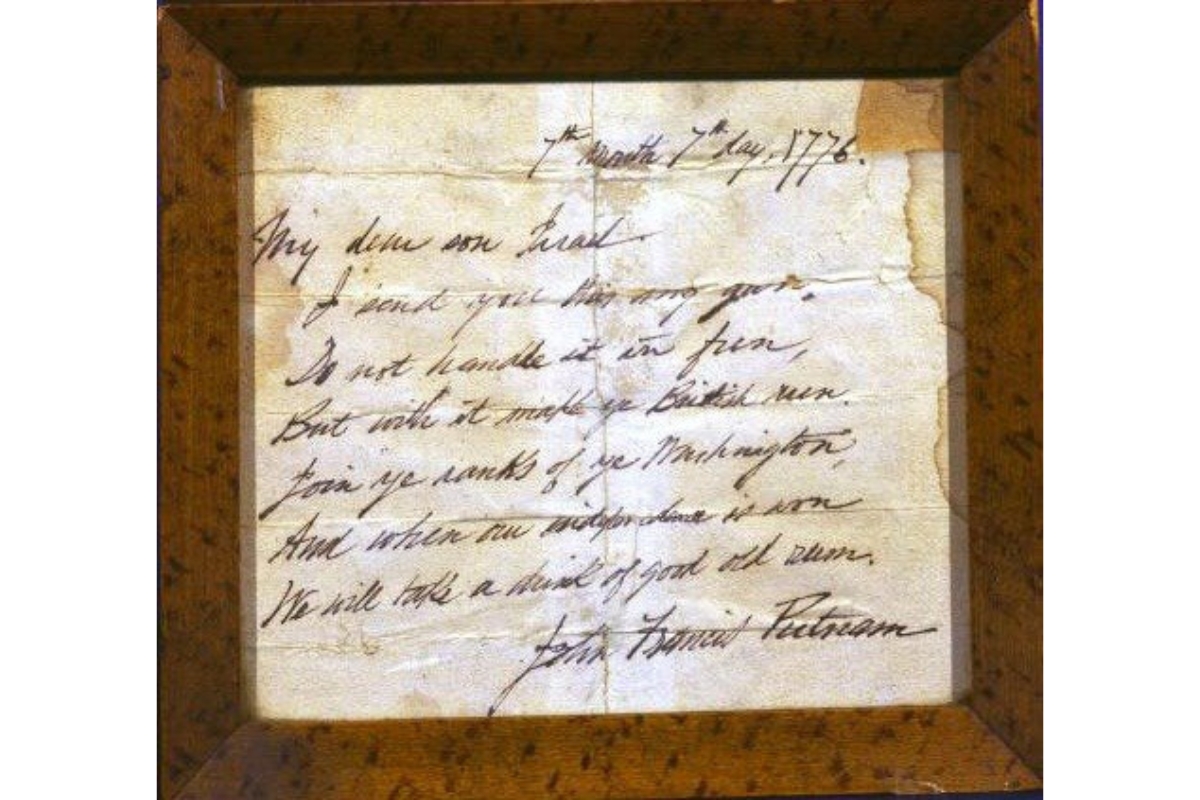 7th Month 7th day, 1776.
My dear son Israel.
I send you this my gun,
Do not handle it in fun,
But with it make ye British run.
Join ye ranks of ye Washington,
And when our independence is won
We will take a drink of good old rum.
John Francis Putnam